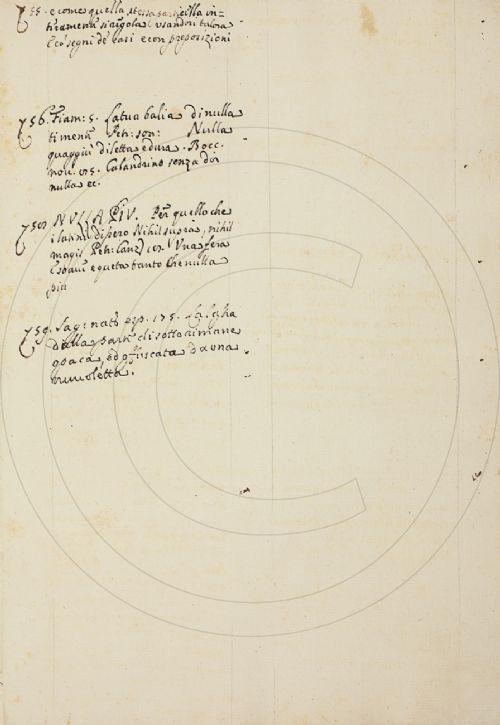 755. e come quella stessa particilla in-
tieramente singola(
E co' segni de' casi e con preposizioni
756. Fiam: 5. La tua balia di nulla
ti mente Petr: son: Nulla
quaggiù diletta e dura. Bocc.
nov. Calandrino senza dir
nulla ec.
NULLA PIV. Per quello che
i latini dissero Nihil supra, nihil
magis Petr: Canz) Una fera
e queta tanto che nulla
più
759. Sag: nat: esp. 175. La
dalla parte di sotto rimane
opaca, ed offuscata da una
nuvoletta.